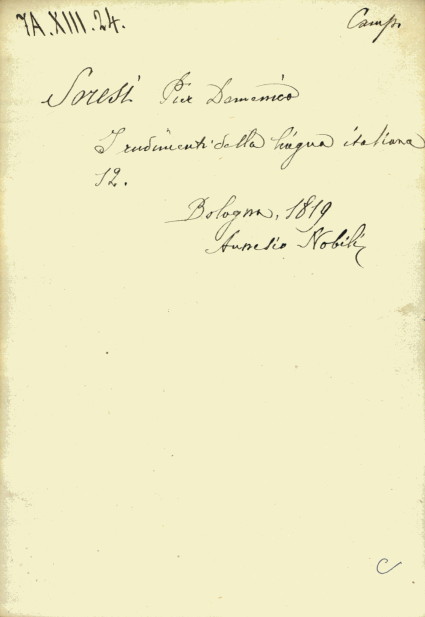 7A.XIII.24.
Camp.
Soresi Pier Domenico
I rudimenti della lingua italiana
12.
Bologna, 1819
Annesio Nobili
C